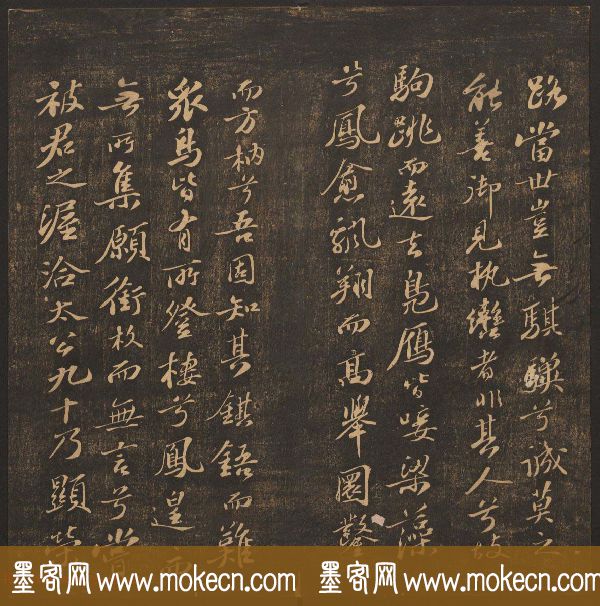 路當世豈无騏驥兮誠莫之
能善御見執轡者非其人兮故
駒跳而遠去鳧鴈皆唼梁藻
兮鳳愈飄翔而高舉圜鑿
而方枘兮吾固知其鉏鋙而難
眾鳥皆有所登棲兮鳳遑
无所集願銜枚而無言兮嘗
被君之渥洽太公九十乃顯榮
墨客网 www.mokecn.com 墨客网 www.mokecn.com